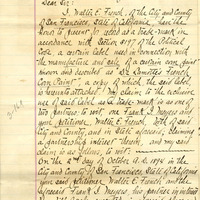 Dear Sir:
I, Walter E. French, of the City and County
of San Francisco, State of California, have the
honor to present for record as a trade-mark in
accordance with Section 3197 of the Political
Code a certain label used in connection with
the manufacture and sale of a certain corn paint
known and described as "De Lamotte's French
Corn Paint", a copy of which the label
is hereunto attached. My claim to the exclusive
use of said label as a trade-mark is as one of
two partners: to wit, one Frank J. Meyers and
your petitioner, Walter E. French, both of said
City and County, and in State aforesaid; claiming
a partnership interest therein, and my said
claim is as follows, to wit:
On the 2nd day of October A.D. 1894 in the
City and County of San Francisco, State of California
your said petitioner, Walter E. French, and the
aforesaid Frank J. Meyers, his partner in interest